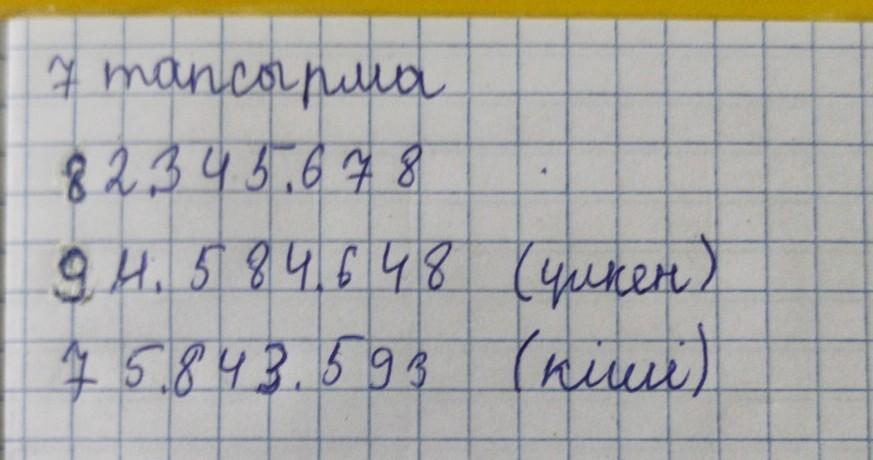 7 тапсырма
82.345.678
94.584.648 (үлкен)
75.843.593 (кіші)